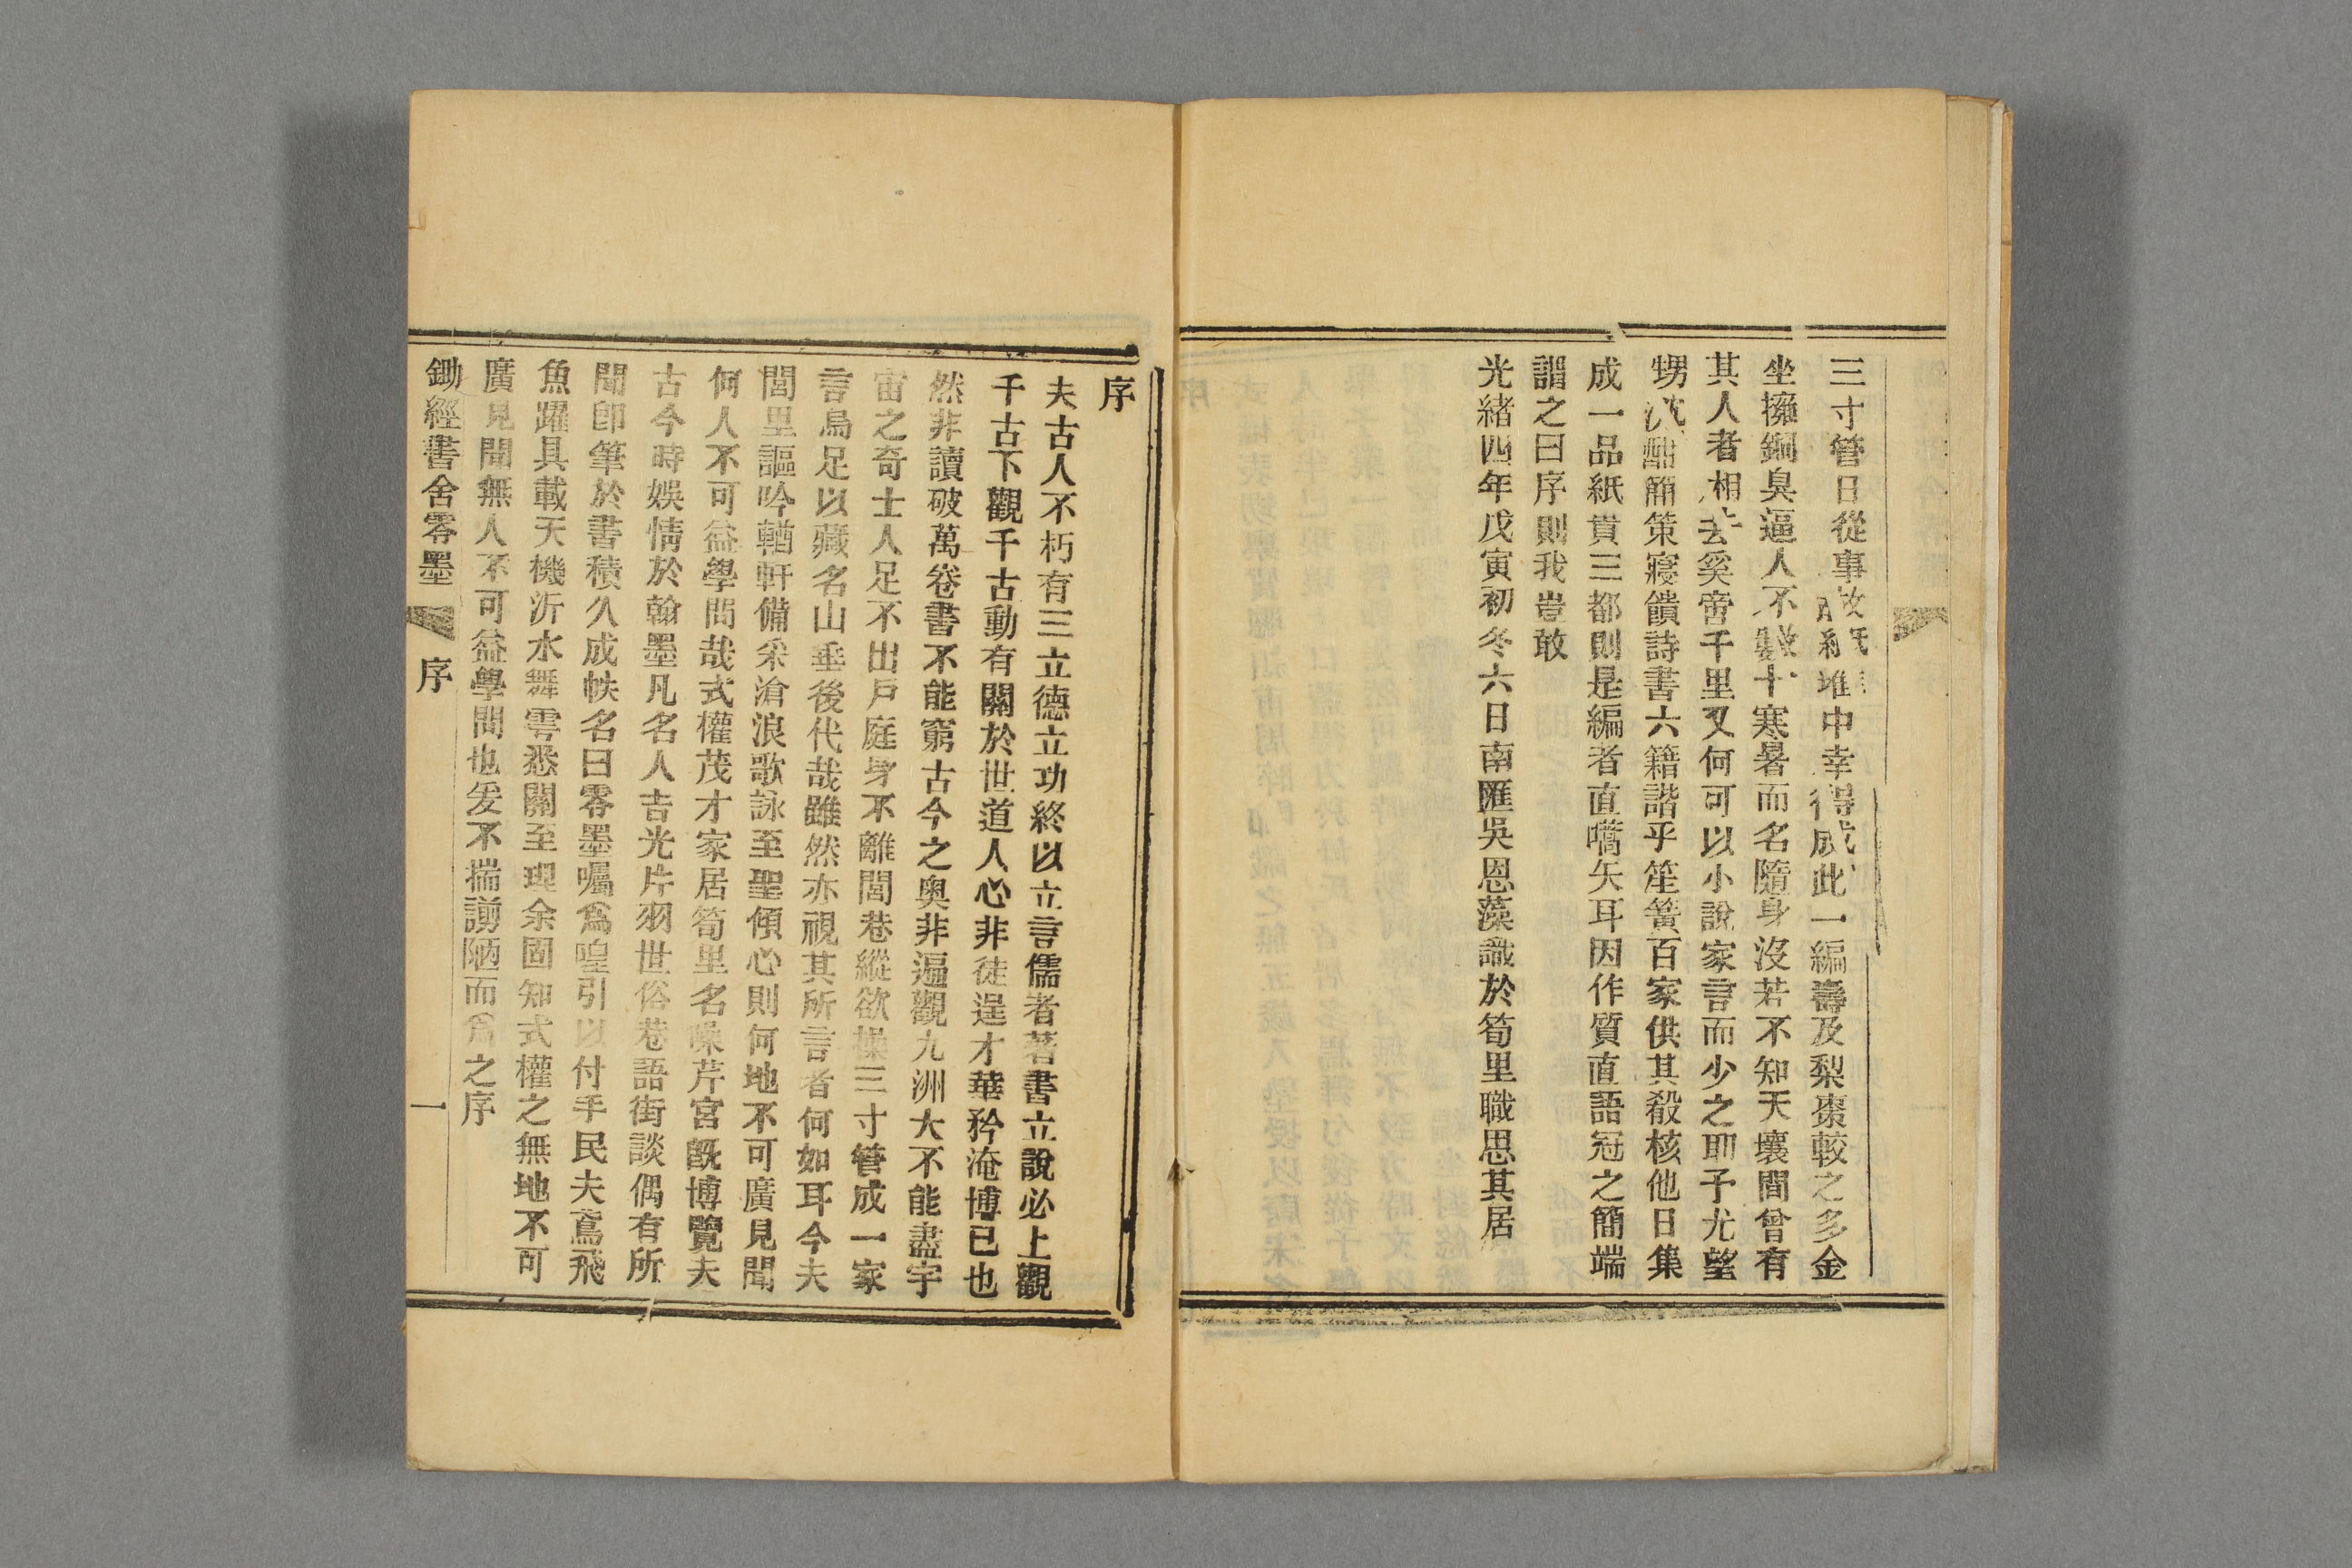 三寸管日從事故紙堆中幸得成此一編壽及梨棗較之多金
坐擁銅臭逼人不數十寒暑而名隨身沒若不知天壤間曾有
其人者相去奚啻千里又何可以小說家言而少之耶予尤望
甥沈酣簡策寢饋詩書六籍諧乎笙簧百家供其殽核他日集
成一品紙貴三都則是編者直嚆矢耳因作質直語冠之簡端
謂之曰序則我豈敢
光緒四年戊寅初冬六日南匯吳恩藻識於筍里職思其居
序
夫古人不朽有三立德立功終以立言儒者著書立說必上觀
千古下觀千古動有關於世道人心非徒逞才華矜淹博已也
然非讀破萬卷書不能窮古今之奧非遍觀九洲大不能盡宇
宙之奇士人足不出戶庭身不離閭巷縱欲操三寸管成一家
言烏足以藏名山垂後代哉雖然亦視其所言者何如耳今夫
閭里謳吟輶軒備采滄浪歌詠至聖傾心則何地不可廣見聞
何人不可益學問哉式權茂才家居筍里名噪芹宮旣博覽夫
古今時娛情於翰墨凡名人吉光片羽世俗巷語街談偶有所
聞卽筆於書積久成帙名曰零墨囑爲喤引以付手民夫鳶飛
魚躍具載天機沂水舞雩悉關至理余固知式權之無地不可
廣見聞無人不可益學問也爰不揣謭陋而爲之序
鋤經書舍零墨 序 一